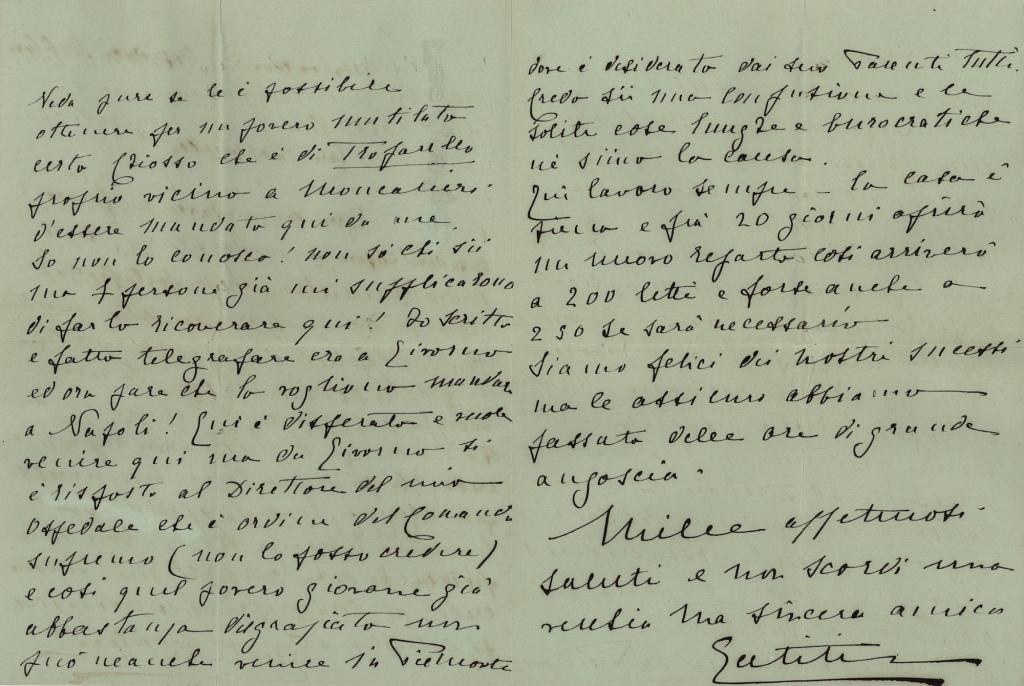 Veda pure se le è possibile
ottenere per un povero mutilato
certo Chiosso che è di Trofarello
proprio vicino a Moncalieri.
d'essere mandato qui da me.
Io non lo conosco! non sò chi sii
ma 7 persone già mi supplicarono
di farlo ricoverare qui! Io scritto
e fatto telegrafare era a Livorno
ed ora pare che lo vogliono mandar
a Napoli! Lui è disperato e vuole
venire qui ma da Livorno si
è risposto al Direttore del mio
Ospedale che è ordine del Comando
supremo (non lo posso credere)
e così quel povero giovane già
abbastanza disgraziato non
può neanche venire in Piemonte
dove è desiderato dai suoi Parenti tutti.
Credo sii una confusione e le
solite cose lunghe e burocratiche
ne siino la causa.
Qui lavoro sempre – la casa è
piena e frà 20 giorni aprirò
un nuovo reparto così arriverò
a 200 letti e forse anche a
250 se sarà necessario
Siamo felici dei nostri sucessi
ma le assicuro abbiamo
passato delle ore di grande
angoscia.
Mille affetuosi
saluti e non scordi una
vecchia ma sincera amica